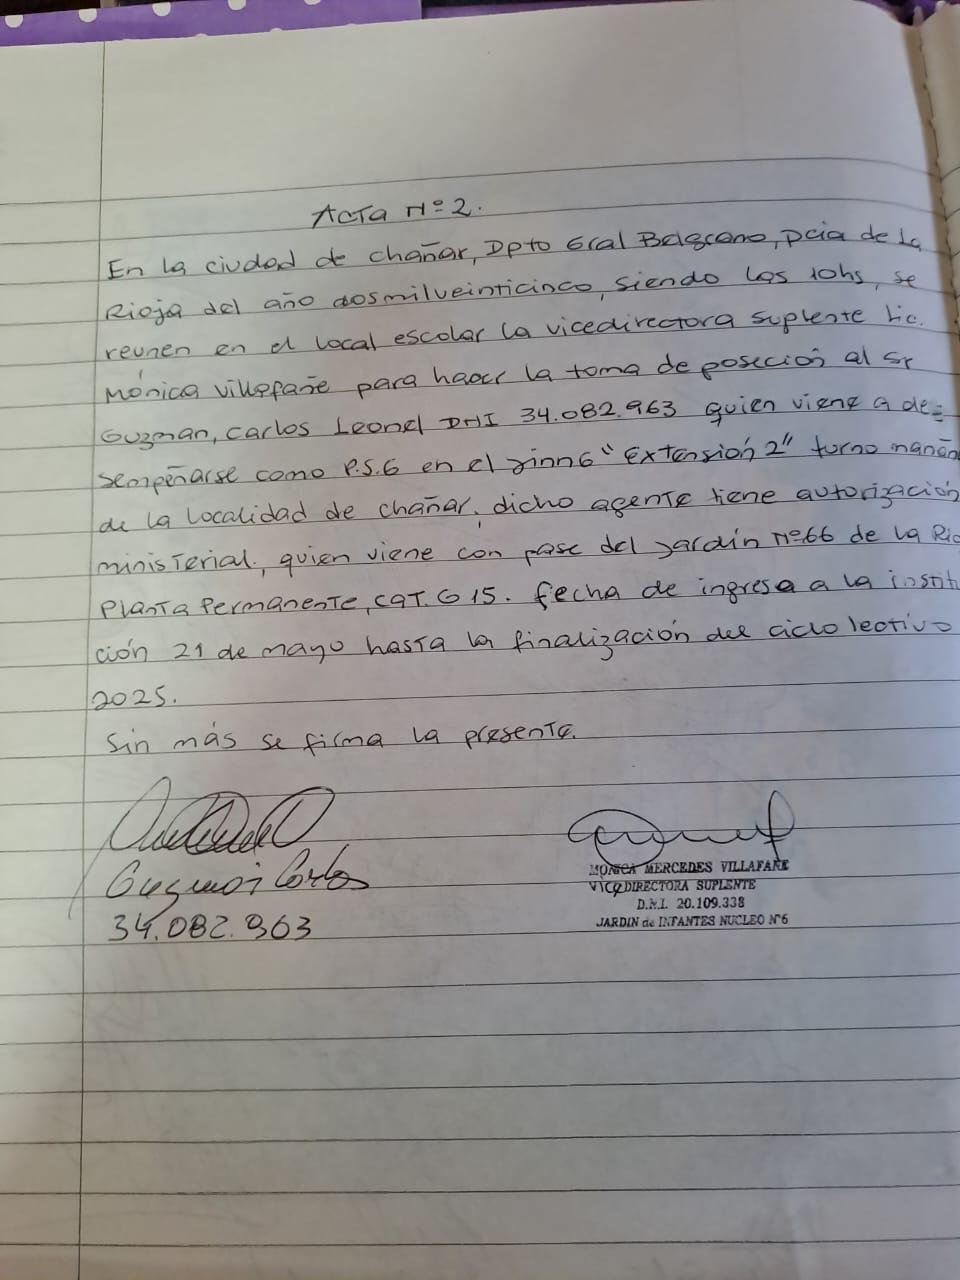 Acta Nº 2.
En la ciudad de chañar, Dpto Gral Belgrano, pcia de la
Rioja del año dosmilveinticinco, siendo las 10hs, se
reunen en el local escolar la vicedirectora suplente Lic.
Mónica Villafañe para hacer la toma de poseción al Sr
Guzman, Carlos Leonel DNI 34.082.963 quien viene a de=
sempeñarse como P.S.G en el JINN6 "Extensión 2" turno mañan
de la localidad de chañar, dicho agente tiene autorización
ministerial, quien viene con pase del Jardín Nº66 de la Rio
Planta Permanente, cat. G 15. fecha de ingresa a la institu
ción 21 de mayo hasta la finalización del ciclo lectivo
2025.
Sin más se firma la presente.
Guzman Carlos
34.082.963
MONICA MERCEDES VILLAFAÑE
VICEDIRECTORA SUPLENTE
D.N.I. 20.109.338
JARDIN de INFANTES NUCLEO Nº6